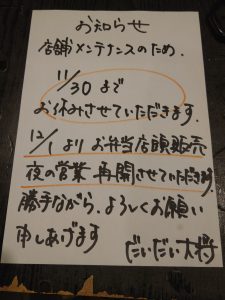 お知らせ
店舗メンテナンスのため.
11/30まで
お休みさせていただきます.
12/1よりお弁当店頭販売
夜の営業 再開させていただきます
勝手ながら、よろしくお願い
申しあげます だいだい大将